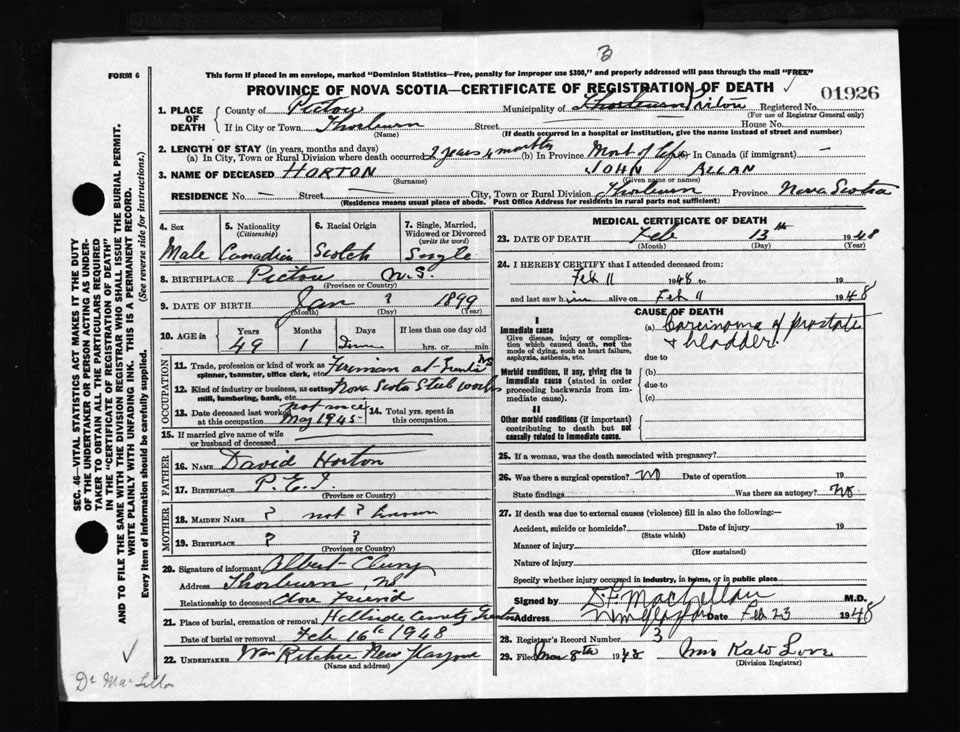 3
FORM 6
This form if placed in an envelope, marked "Dominion Statistics—Free, penalty for improper use $300," and properly addressed will pass through the mail "FREE"
PROVINCE OF NOVA SCOTIA—CERTIFICATE OF REGISTRATION OF DEATH
01926
1. PLACE OF DEATH County of Pictou Municipality of Thorburn Registered No.
(For use of Registrar General only)
If in City or Town Thorburn Street House No.
(Name) (If death occurred in a hospital or institution, give the name instead of street and number)
2. LENGTH OF STAY (in years, months and days)
(a) In City, Town or Rural Division where death occurred 2 years 4 months (b) In Province Most of life (c) In Canada (if immigrant) —
3. NAME OF DECEASED HORTON JOHN ALLAN
(Surname) (Given name or names)
RESIDENCE No. — Street — City, Town or Rural Division Thorburn Province Nova Scotia
(Residence means usual place of abode. Post Office Address for residents in rural parts not sufficient)
4. Sex Male
5. Nationality (Citizenship) Canadian
6. Racial Origin Scotch
7. Single, Married, Widowed or Divorced (write the word) Single
8. BIRTHPLACE Pictou N.S.
(Province or County)
9. DATE OF BIRTH Jan ? 1899
(Month) (Day) (Year)
10. AGE in Years Months Days If less than one day old
49 1 hrs. or min.
OCCUPATION
11. Trade, profession or kind of work as spinner, teamster, office clerk, etc. Fireman at Trenton NS
12. Kind of industry or business, as cotton mill, lumbering, bank, etc. Nova Scotia Steel works
13. Date deceased last worked at this occupation not since May 1945
14. Total yrs. spent in this occupation
15. If married give name of wife or husband of deceased
FATHER
16. NAME David Horton
17. BIRTHPLACE P.E.I.
(Province or Country)
MOTHER
18. MAIDEN NAME ? not ? known
19. BIRTHPLACE ? ?
(Province or Country)
20. Signature of informant Albert
Address Thorburn, NS
Relationship to deceased Close Friend
21. Place of burial, cremation or removal Hillside Cemetery Trenton
Date of burial or removal Feb 16th 1948
22. UNDERTAKER Wm Ritchie New Glasgow
(Name and address)
MEDICAL CERTIFICATE OF DEATH
23. DATE OF DEATH Feb 13th 1948
(Month) (Day) (Year)
24. I HEREBY CERTIFY that I attended deceased from:
Feb 11 1948 to
and last saw him alive on Feb 11 1948
CAUSE OF DEATH
I
Immediate cause
Give disease, injury or complication which caused death, not the mode of dying, such as heart failure, asphyxia, asthenia, etc.
(a) Carcinoma of prostate & bladder.
due to
Morbid conditions, if any, giving rise to immediate cause (stated in order proceeding backwards from immediate cause).
(b)
due to
(c)
II
Other morbid conditions (if important) contributing to death but not causally related to immediate cause.
25. If a woman, was the death associated with pregnancy?
26. Was there a surgical operation? NO Date of operation 19
State findings Was there an autopsy? NO
27. If death was due to external causes (violence) fill in also the following:—
Accident, suicide or homicide? Date of injury 19
(State which)
Manner of injury
(How sustained)
Nature of injury
Specify whether injury occurred in industry, in home, or in public place
Signed by D.F. MacLellan M.D.
Address New Glasgow Date Feb 23 1948
28. Registrar's Record Number 3
29. Filed Mar 8th 1948 Mrs Kate Love
(Division Registrar)
SEC. 46—VITAL STATISTICS ACT MAKES IT THE DUTY
OF THE UNDERTAKER OR PERSON ACTING AS UNDERTAKER TO OBTAIN ALL THE PARTICULARS REQUIRED
IN THE "CERTIFICATE OF REGISTRATION OF DEATH"
AND TO FILE THE SAME WITH THE DIVISION REGISTRAR WHO SHALL ISSUE THE BURIAL PERMIT.
WRITE PLAINLY WITH UNFADING INK. THIS IS A PERMANENT RECORD.
Every item of information should be carefully supplied. (See reverse side for instructions.)
Dr MacLellan